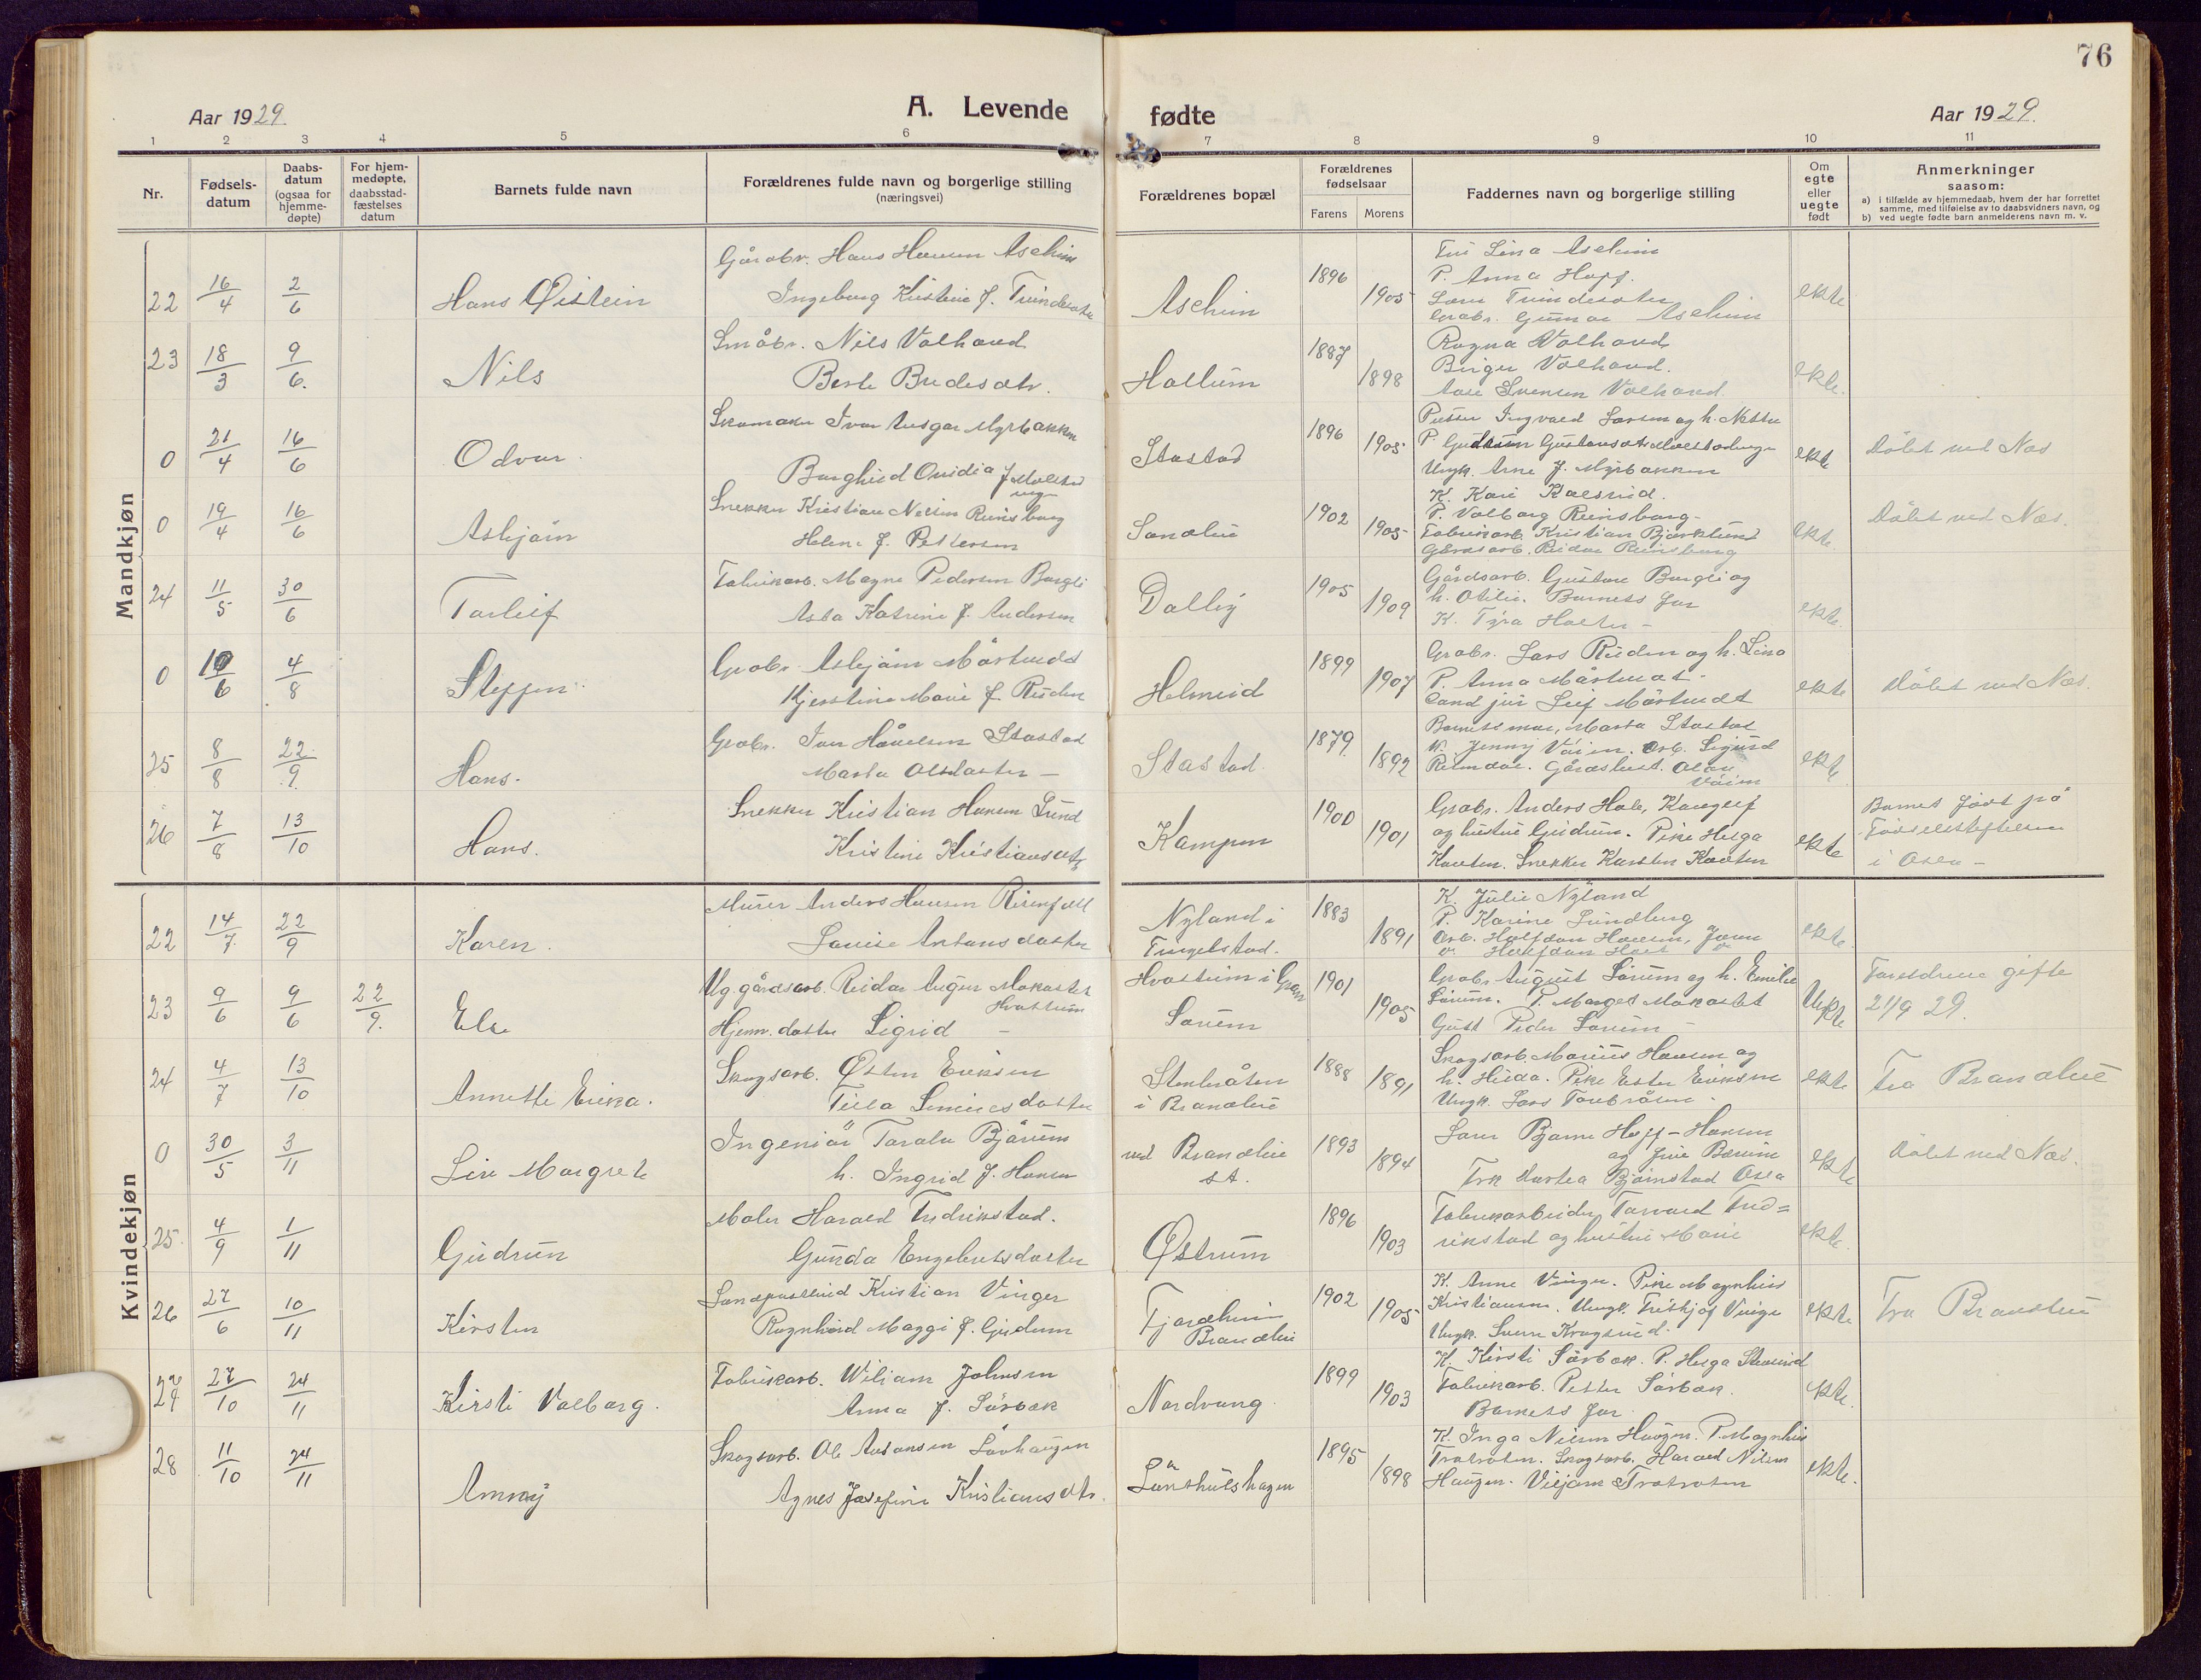 76
Aar 1929.
A. Levende
fødte
Aar 1929.
1 2 3 4 5 6 7 8 9 10 11
Nr.
Fødsels-
datum
Daabs-
datum
(ogsaa for
hjemme-
døpte)
For hjem-
medøpte,
daabsstad-
fæstelses
datum
Barnets fulde navn
Forældrenes fulde navn og borgerlige stilling
(næringsvei)
Forældrenes bopæl
Forældrenes
fødselsaar
Farens Morens
Faddernes navn og borgerlige stilling
Om
egte
eller
uegte
født
Anmerkninger
saasom:
a) i tilfælde av hjemmedaab, hvem der har forrettet
samme, med tilføielse av to daabsvidners navn, og
b) ved uegte fødte barn anmelderens navn m. v.
Mandkjøn
22 16/4 2/6 Hans Øistein
Gårdbr. Hans Hansen Aschim
Ingeborg Kristine f.
Aschim
1896 1905
Fru Lina Aschim
P. Anna Hopf.
Gårdbr. Gunnar Aschim
ekte
23 18/3 9/6. Nils
Småbr. Nils Volhaud
Berte
Hallum
1887 1898
Ragna Volhaud
Birger Volhaud.
Aase Svensen Volhaud.
ekte.
0 21/4 16/6 Odvar.
Skomaker Ivar Ansgar Myrbakken
Borghild Ovidia f.
Stastad
1896 1905
Petter Ingvald Larsen og h.
P. Gudrun
Ungk. Arne J. Myrbakken
ekte
Døbt ved Næs
0 19/4 16/6 Asbjørn
Snekker Kristian Nilsen Reinsborg
Helene f. Pettersen
Sandlie
1902 1905
K. Kari Kalsrud.
P. Valborg Reinsborg
Fabrikarb. Kristian Bjørklund
Gårdsarb. Reidar Reinsborg
ekte.
Døbt ved Næs.
24 11/5 30/6 Torleif
Fabrikarb. Magne Pedersen Borgli
Asta Katrine f. Andersen
Dalby
1905 1909
Gårdsarb. Gustav Borgli og
h. Otilie. Barnets far
K. Tyra Holter -
ekte.
0 10/6 4/8 Steffen.
Grdbr. Asbjørn Mårtvedt
Kjerstine Marie f. Ruden
Helmeid
1899 1907
Grdbr. Lars Ruden og h. Lina
P. Anna Mårtvedt.
Cand jur Leif Mårtvedt
ekte
Døbt ved Næs.
25 8/8 22/9. Hans.
Grdbr. Ivar Håvelsen Stastad
Marta Olsdatter -
Stastad.
1879. 1892
Barnets mor, Marta Stastad
K. Jenny Vøien. Arb. Sigurd
Reindal. Gårdsbest. Olav
Vøien
ekte
26 7/8 13/10 Hans.
Snekker Kristian Hansen Lund
Kristine Kristiansdtr
Kampen
1900 1901
Grdbr. Anders Hole,
og hustru Gudrun. Pike Helga
Kalten. Snekker Karsten Kalten
ekte
Barnet født på
Fødselsstiftelsen
i Oslo -
Kvindekjøn
22 14/7. 22/9 Karen.
Murer Anders Hansen
Lovise Antonsdatter
Nyland i
Tingelstad.
1883 1891
K. Julie Nyland
P. Karine Lundberg
Arb. Halfdan Hansen,
ekte.
23 9/6 9/6 22/9. Else
Ug. gårdsarb. Reidar August
Hjem. datter Sigrid -
Hvattum i Gran
Sørum
1901 1905
Grdbr. August Sørum og h. Emilie
Sørum. P. Margot
Gust Peder Sørum -
Uekte
Foreldrene gifte
21/9 29.
24 4/7 13/10 Annette Erika.
Skogsarb. Østen Eriksen
Tilla
i Brandbu
1888 1891
Skogsarb. Marius Hansen og
h. Hilda. Pike Ester Eriksen
Ungk. Lars
ekte
Fra Brandbu
0 30/5 3/11 Liv Margrete
Ingeniør Bjørum
h. Ingrid f. Hansen
ved Brandbu
st.
1893 1894
Bjarne Hopf-Hansen
og
Frk Martea Bjørnstad Oslo
ekte
Døbt ved Næs.
25. 4/9 1/11 Gudrun
Maler Harald Fredrikstad.
Gunda Engebretsdatter
Østrum
1896 1903
Fabrikarbeider Torvald Fred=
rikstad og hustru Marie
ekte.
26 27/6 10/11 Kirsten
Landpostbud Kristian Vinger
Ragnhild Maggi f. Gudum
Fjordheim
Brandbu
1902 1905
K. Anna Vinger. Pike Magnhild
Kristiansen. Ungk. Fritjof Vinger
Ungk. Sverre Krogsrud.
ekte
Fra Brandbu
27 27/10 24/11 Kirsti Valborg.
Fabrikarb. Wiliam Johnsen
Anna f. Sørbæk
Nordvang.
1899 1903
K. Kirsti Sørbæk. P. Helga
Fabrikarb. Petter Sørbæk.
Barnets far.
ekte.
28 11/10 24/11 Anny
Skogsarb. Ole Antonsen Løvhaugen
Agnes Josefine Kristiansdtr.
1895 1898
K. Inga Nilsen Haugen. P. Magnhild
Skogsarb. Harald Nilsen
Haugen.
ekte.